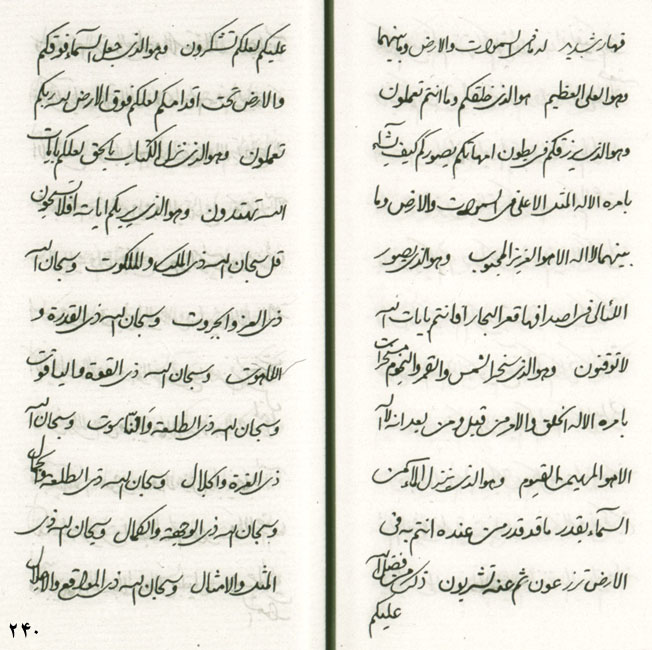 قهار شديد له ما فى السموات والارض وما بينهما
وهو العلى العظيم هو الذى خلقكم وما انتم تعملون
وهو الذى يرزقكم فى بطون امهاتكم يصوركم كيف يشآء
بامره الا له المثل الاعلى فى السموات والارض وما
بينهما لا اله الا هو العزيز المحبوب وهو الذى يصور
اللئالى فى اصدافها قعر البحار افانتم بايات الله
لا توقنون وهو الذى سخر الشمس والقمر والنجوم مسخرات
بامره الا له الخلق والامر من قبل ومن بعد انه لا اله
الا هو المهيمن القيوم وهو الذى ينزل الماء من
السمآء بقدر ما قد قدر من عنده انتم به فى
الارض تزرعون ثم عنه تشربون ذلك من فضل الله
عليكم
عليكم لعلكم تشكرون وهو الذى جعل السمآء فوقكم
والارض تحت اقدامكم لعلكم فوق الارض بامر ربكم
تعملون وهو الذى نزل الكتاب بالحق لعلكم بايات
الله تهتدون وهو الذى يريكم اياته افلا تسبحون
قل سبحان الله ذى الملك والملكوت وسبحان الله
ذى العز والجبروت وسبحان الله ذى القدرة و
اللاهوت وسبحان الله ذى القوة والياقوت
وسبحان الله ذى الطلعة والناسوت وسبحان الله
ذى العزة والجلال وسبحان الله ذى الطلعة والجمال
وسبحان الله ذى الوجهة والكمال وسبحان الله ذى
المثل والامثال وسبحان الله ذى المواقع والاجلال
٢٤٠